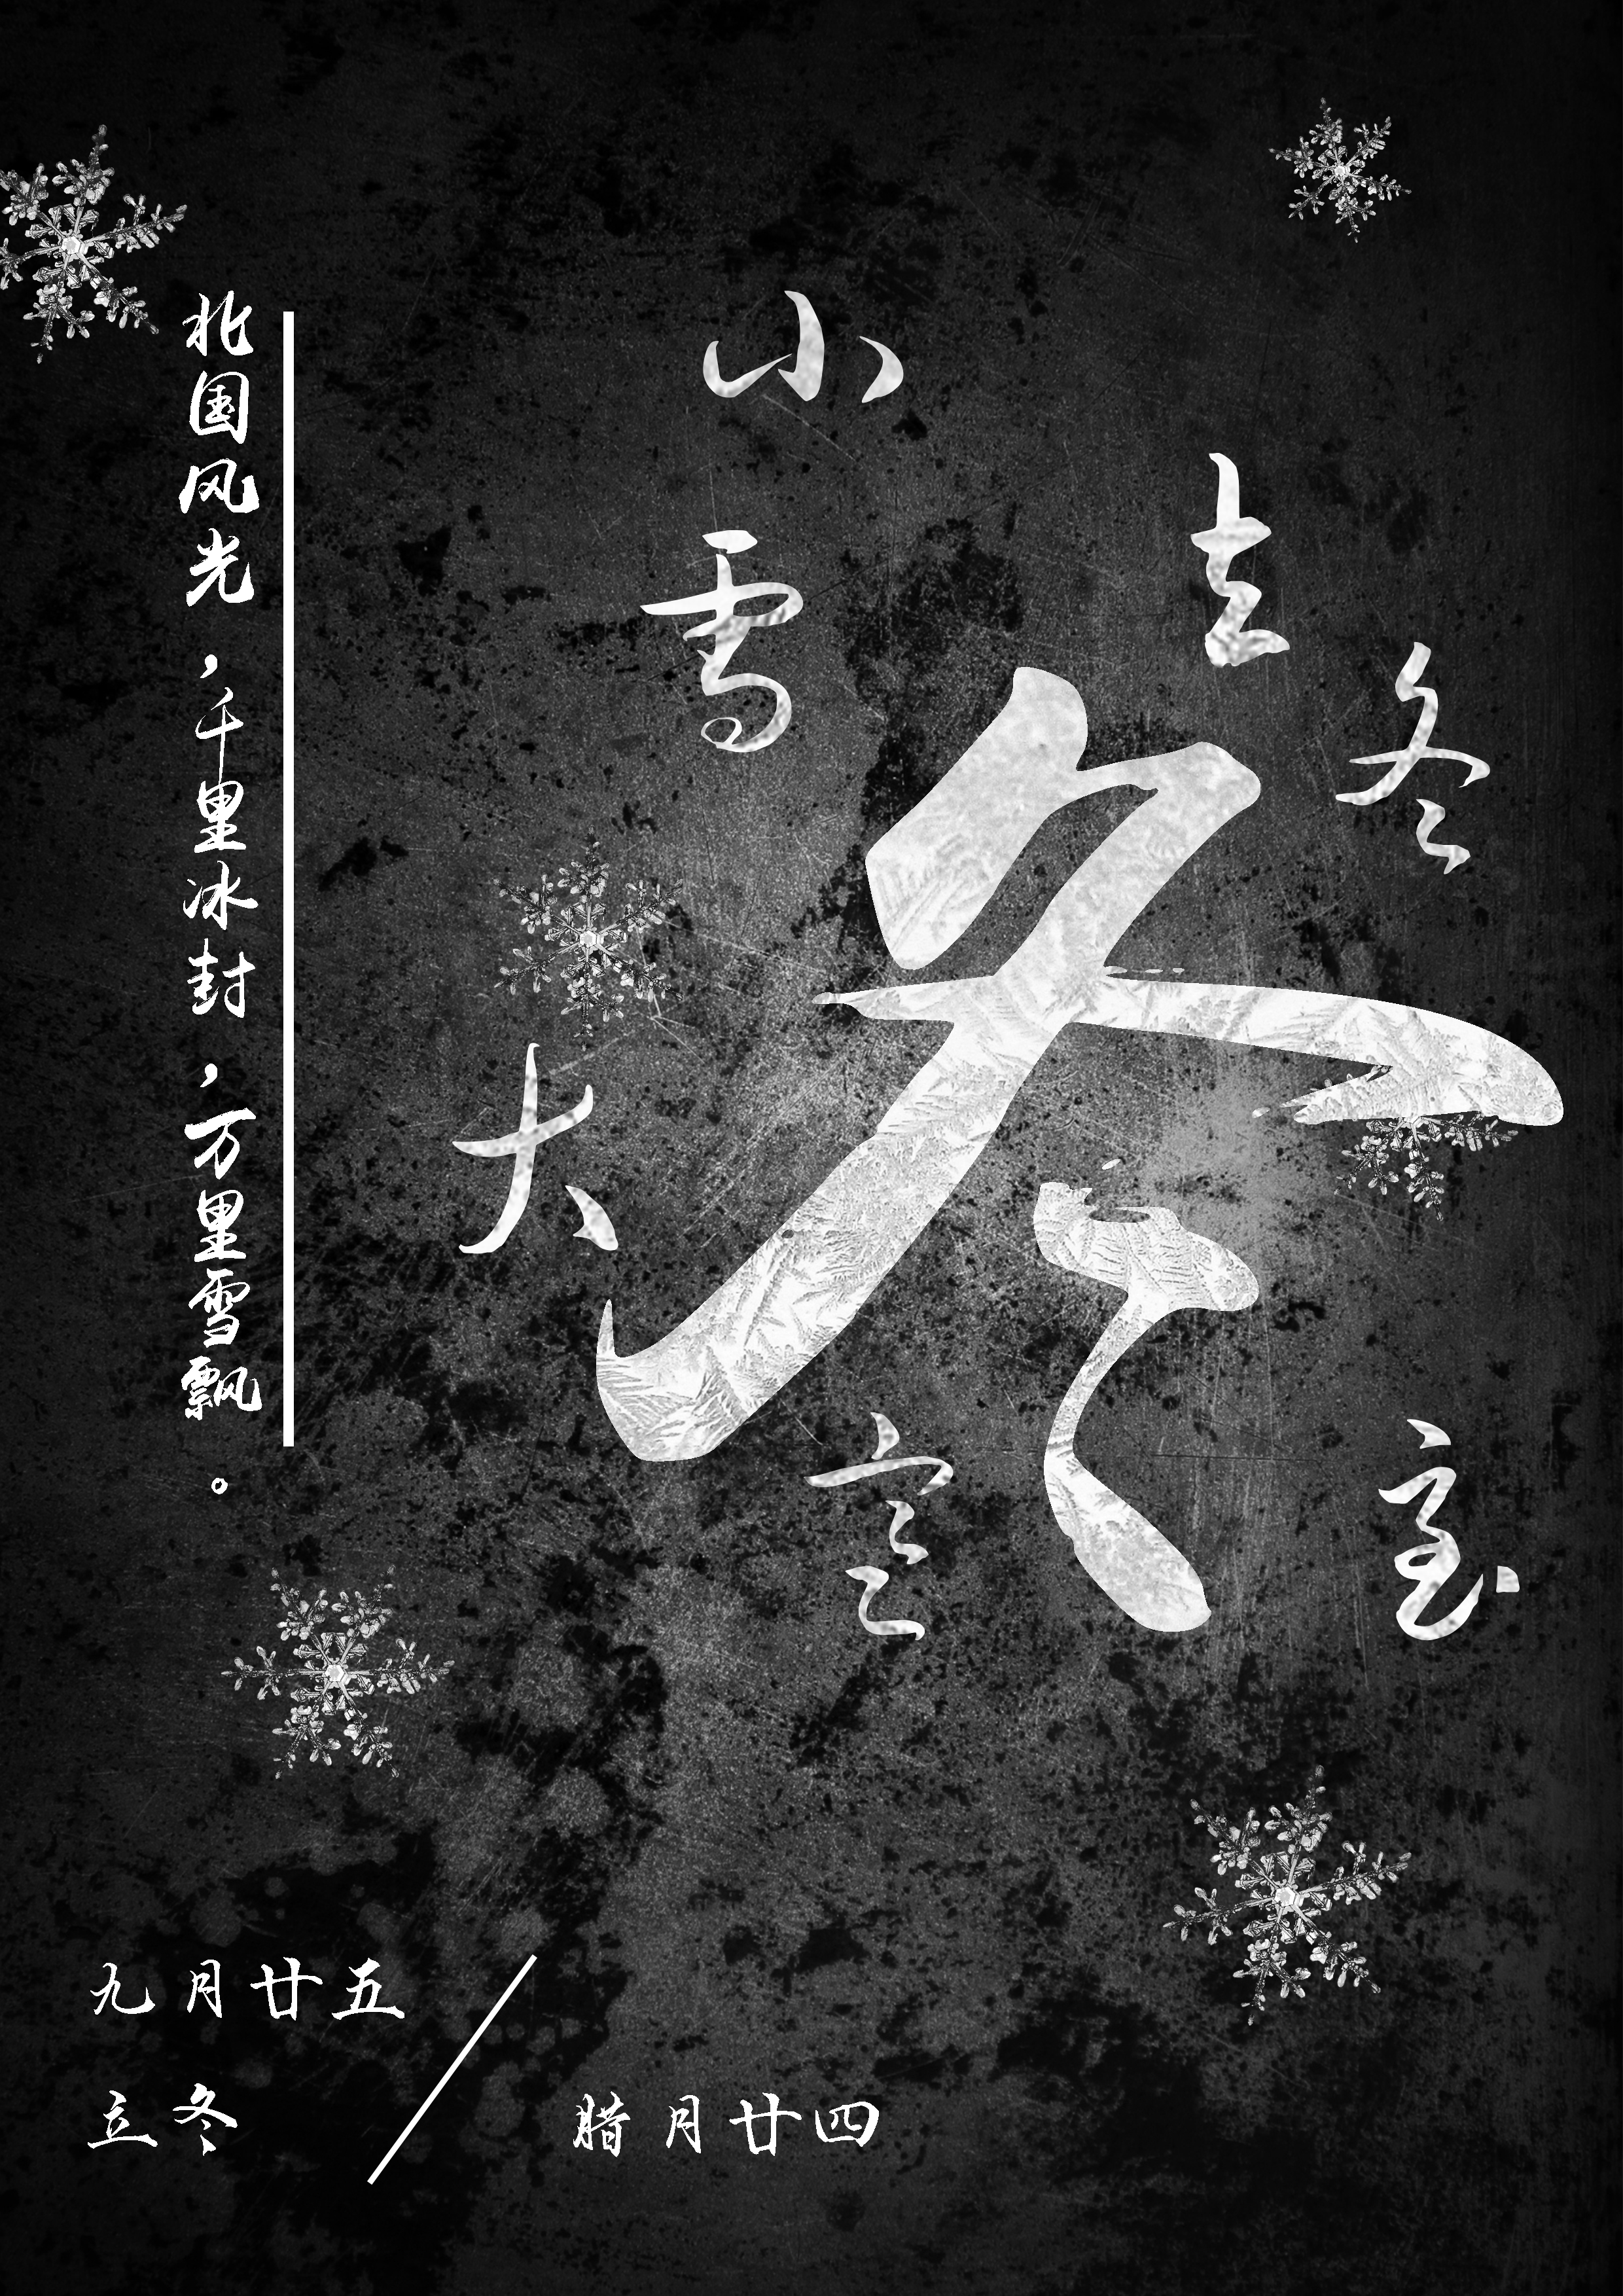 小雪
立冬
冬
大寒
至
北国风光，千里冰封，万里雪飘。
九月廿五
立冬
腊月廿四